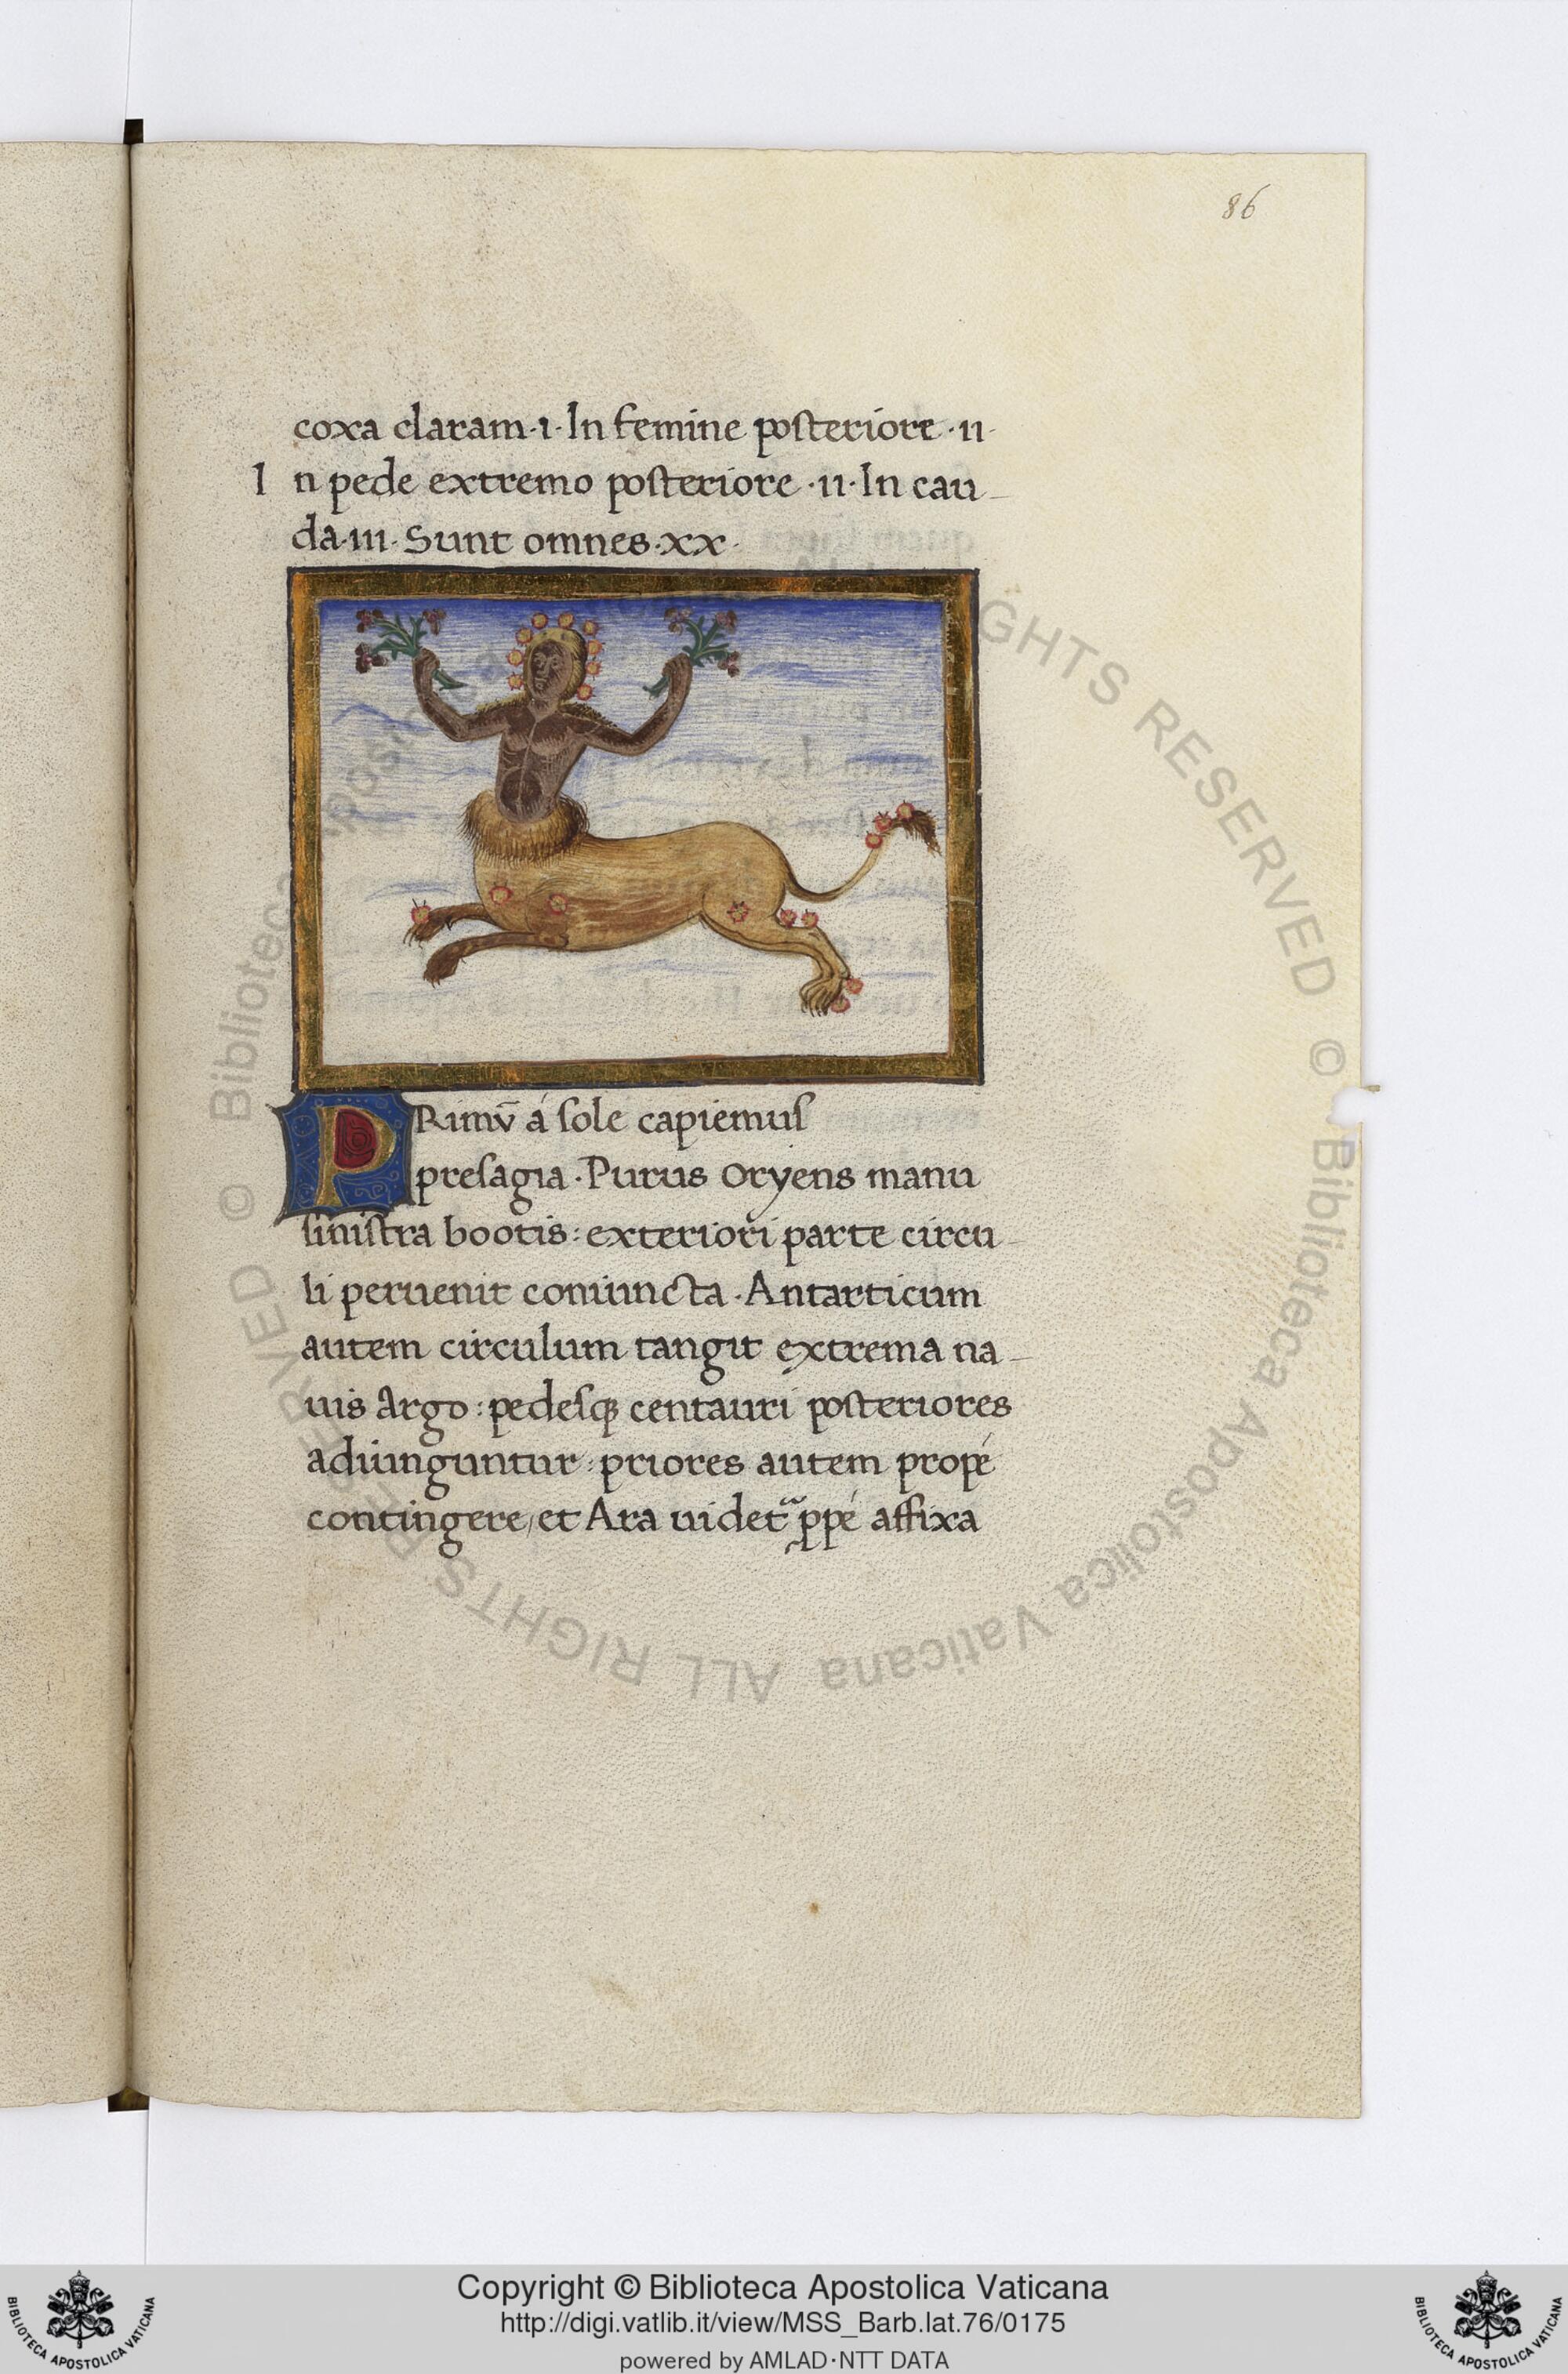 86
coxa claram·i·In femine posteriore·ii·
In pede extremo posteriore·ii·In cau-
da·iii·Sunt omnes·xx·
PRimū á sole capiemus
presagia·Purus oryens manu
sinistra bootis: exteriori parte circu-
li peruenit coniuncta·Antarticum
autem circulum tangit extrema na-
uis Argo: pedesqꝫ centauri posteriores
adiunguntur: priores autem propé
contingere/et Ara uidet᷑ ꝓpé affixa
© Biblioteca Apostolica Vaticana ALL RIGHTS RESERVED
Copyright © Biblioteca Apostolica Vaticana
http://digi.vatlib.it/view/MSS_Barb.lat.76/0175
powered by AMLAD·NTT DATA
BIBLIOTECA APOSTOLICA VATICANA
BIBLIOTECA APOSTOLICA VATICANA